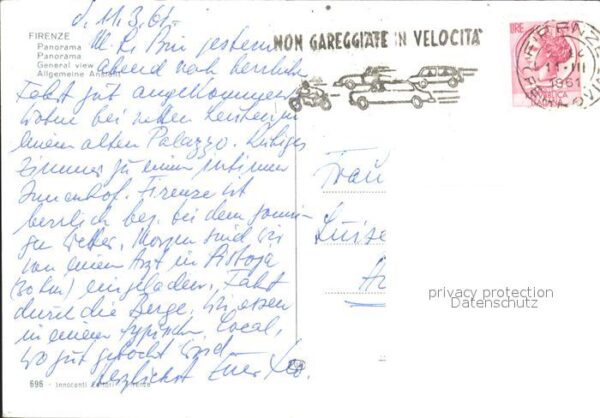 FIRENZE
Panorama
Panorama
General view
Allgemeine Ansicht
d. 11.3.61.
M. L. Bin gestern
abend nach herrlicher
Fahrt gut angekommen
Wohne bei netten Leuten in
einem alten Palazzo. Ruhiges
Zimmer zu einem intimen
Innenhof. Firenze ist
herrlich bes. bei dem sonni-
gen Wetter. Morgen sind wir
von einem Arzt in Pistoja
(30 km) eingeladen, Fahrt
durch die Berge. Wir essen
in einem typischen Local,
wo gut gekocht wird
herzlichst Euer
696 - Innocenti Editori - Firenze
NON GAREGGIATE IN VELOCITÀ
LIRE
FIRENZE
11-III
1961
Frau
Luise
privacy protection
Datenschutz